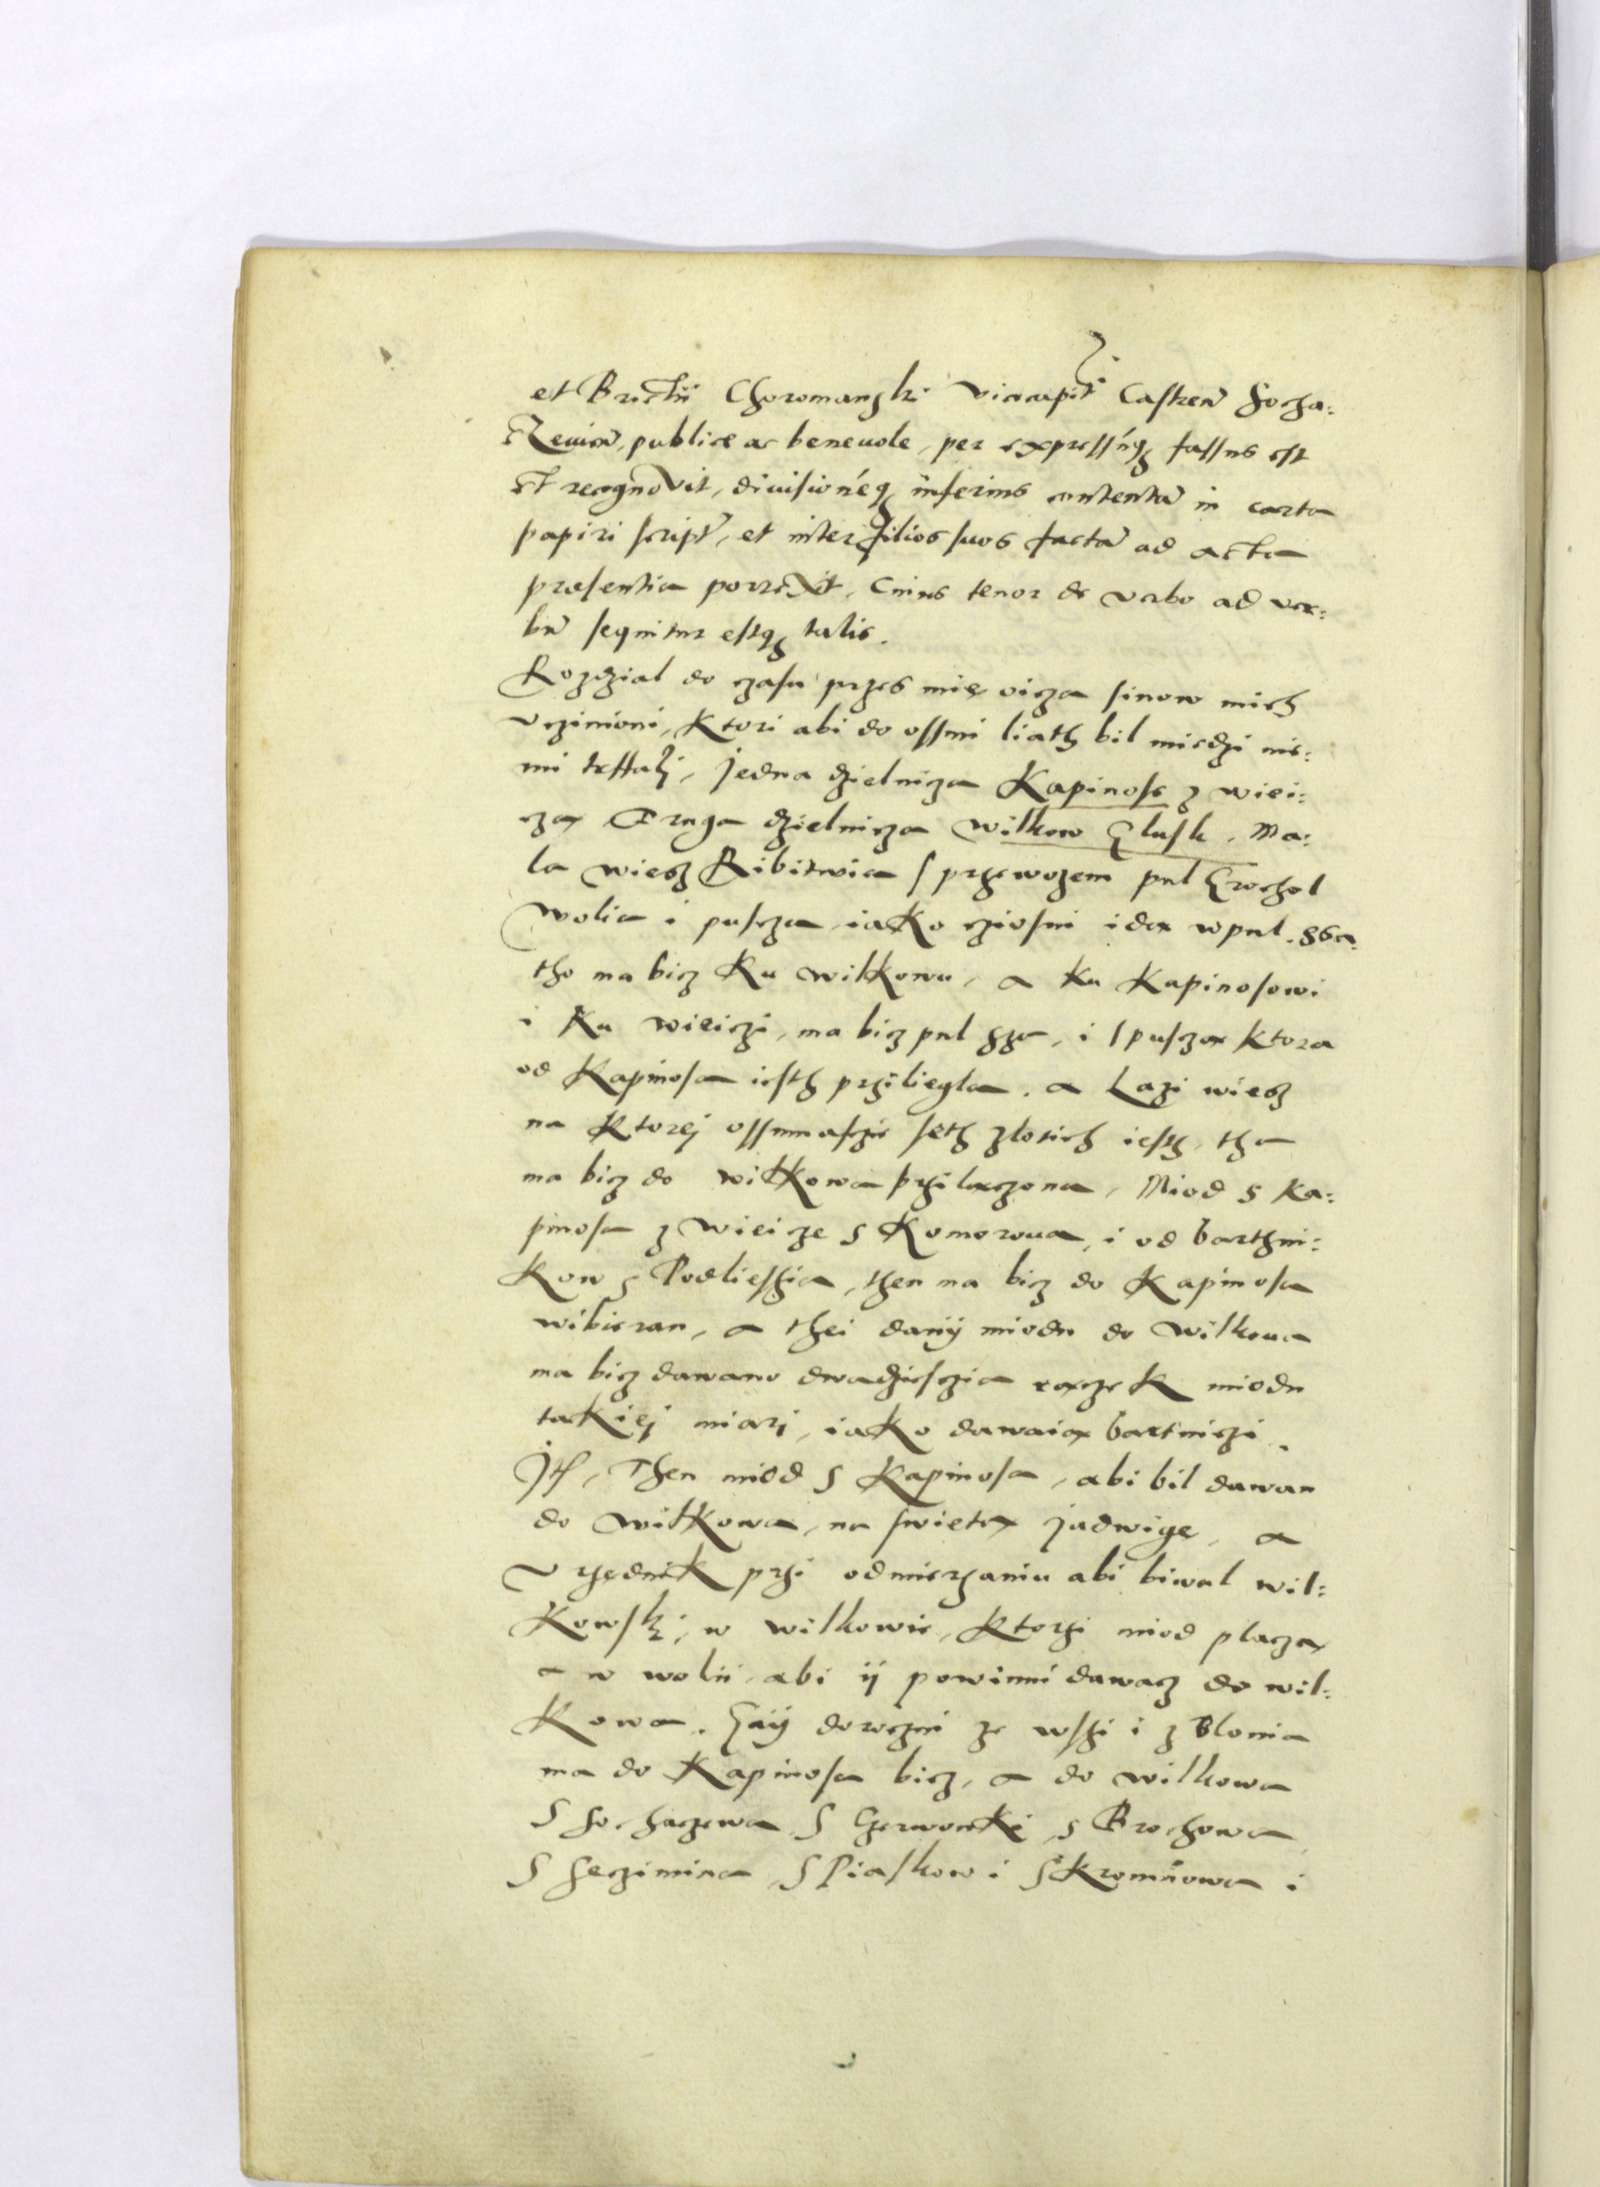 et Brictii Choromanski vicecapit Castren Socha:
czeuien, publice ac beneuole, per expressūq fassus est
et recognovit, diuisionéq inferius contentā in carta
papiri script, et inter filios suos factā ad acta
præsentia porrexit, Cuius tenor de verbo ad ver:
bū sequitur estq talis.
Rozdzial do czasu przes mię oicza sinow mich
vczinioni, Ktori abi do ossmi liath bil miedzi nie:
mi trstalj, Jedna dzielnicza Kapinosc z wiei:
czą Druga dzielnicza Wilkow Glusk, Ma:
la wiesz Ribitwia s przewozem pul Grochol
Wolia i puscza iako cziosni idą wpul
tho ma bicz Ku Wilkowu, a Ku Kapinosowi
i Ku Wieiczi, ma bicz pul i s pusczą Ktora
od Kapinosa iesth przilegla. a Lazi wiesz
na Ktorej ossmnasczie seth zlotich iesth, tha
ma bicz do wilkowa przilączona, Miod s Ka:
pinosa z Wieicze s Komorowa, i od barthni:
Kow s Podlieszia, then ma bicz do Kapinosa
wibieran, a thei danÿ miodu do Wilkowa
ma bicz dawano dwadziesczia rączek miodu
takiej miarj, iako dawaią bartniczi.
Jt, Then miod s Kapinosa, abi bil dawan
do Wilkowa, na swiętą Jadwigę, a
Vrzędnik przi odmierzaniu abi biwal wil:
Kowskj, w wilkowie, Ktorzi miod placzą
a w wolii, abi ij powinni dawacz do wil:
Kowa. Gaÿ doroczni ze wszi i z Blonia
ma do Kapinosa bicz, a do wilkowa
S Sochaczewa S Czerwonki s Brochowa
S Seczimina S Piaskow i S Kromnowa i